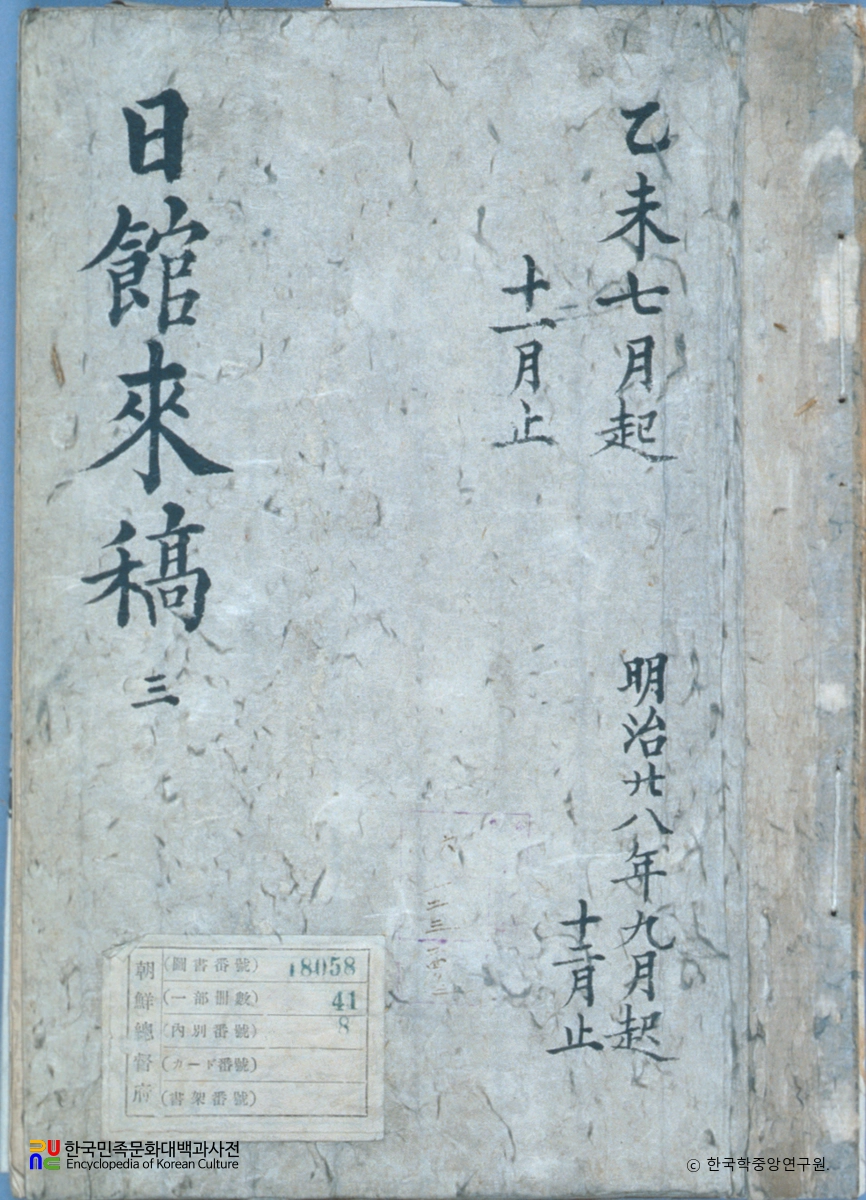 乙未七月起
十一月止
明治廿八年九月起
十二月止
日館來稿 三
朝鮮總督府
(圖書番號) 18058
(一部冊數) 41
(內別番號) 8
(カード番號)
(書架番號)
한국민족문화대백과사전
Encyclopedia of Korean Culture
ⓒ 한국학중앙연구원.